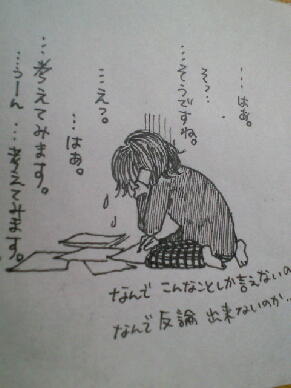 …はぁ。
そっ…
…そうですね。
…えっ。
…はぁ。
…考えてみます。
…うーん…考えてみます。
なんで こんなことしか言えないの
なんで 反論 出来ないのか…